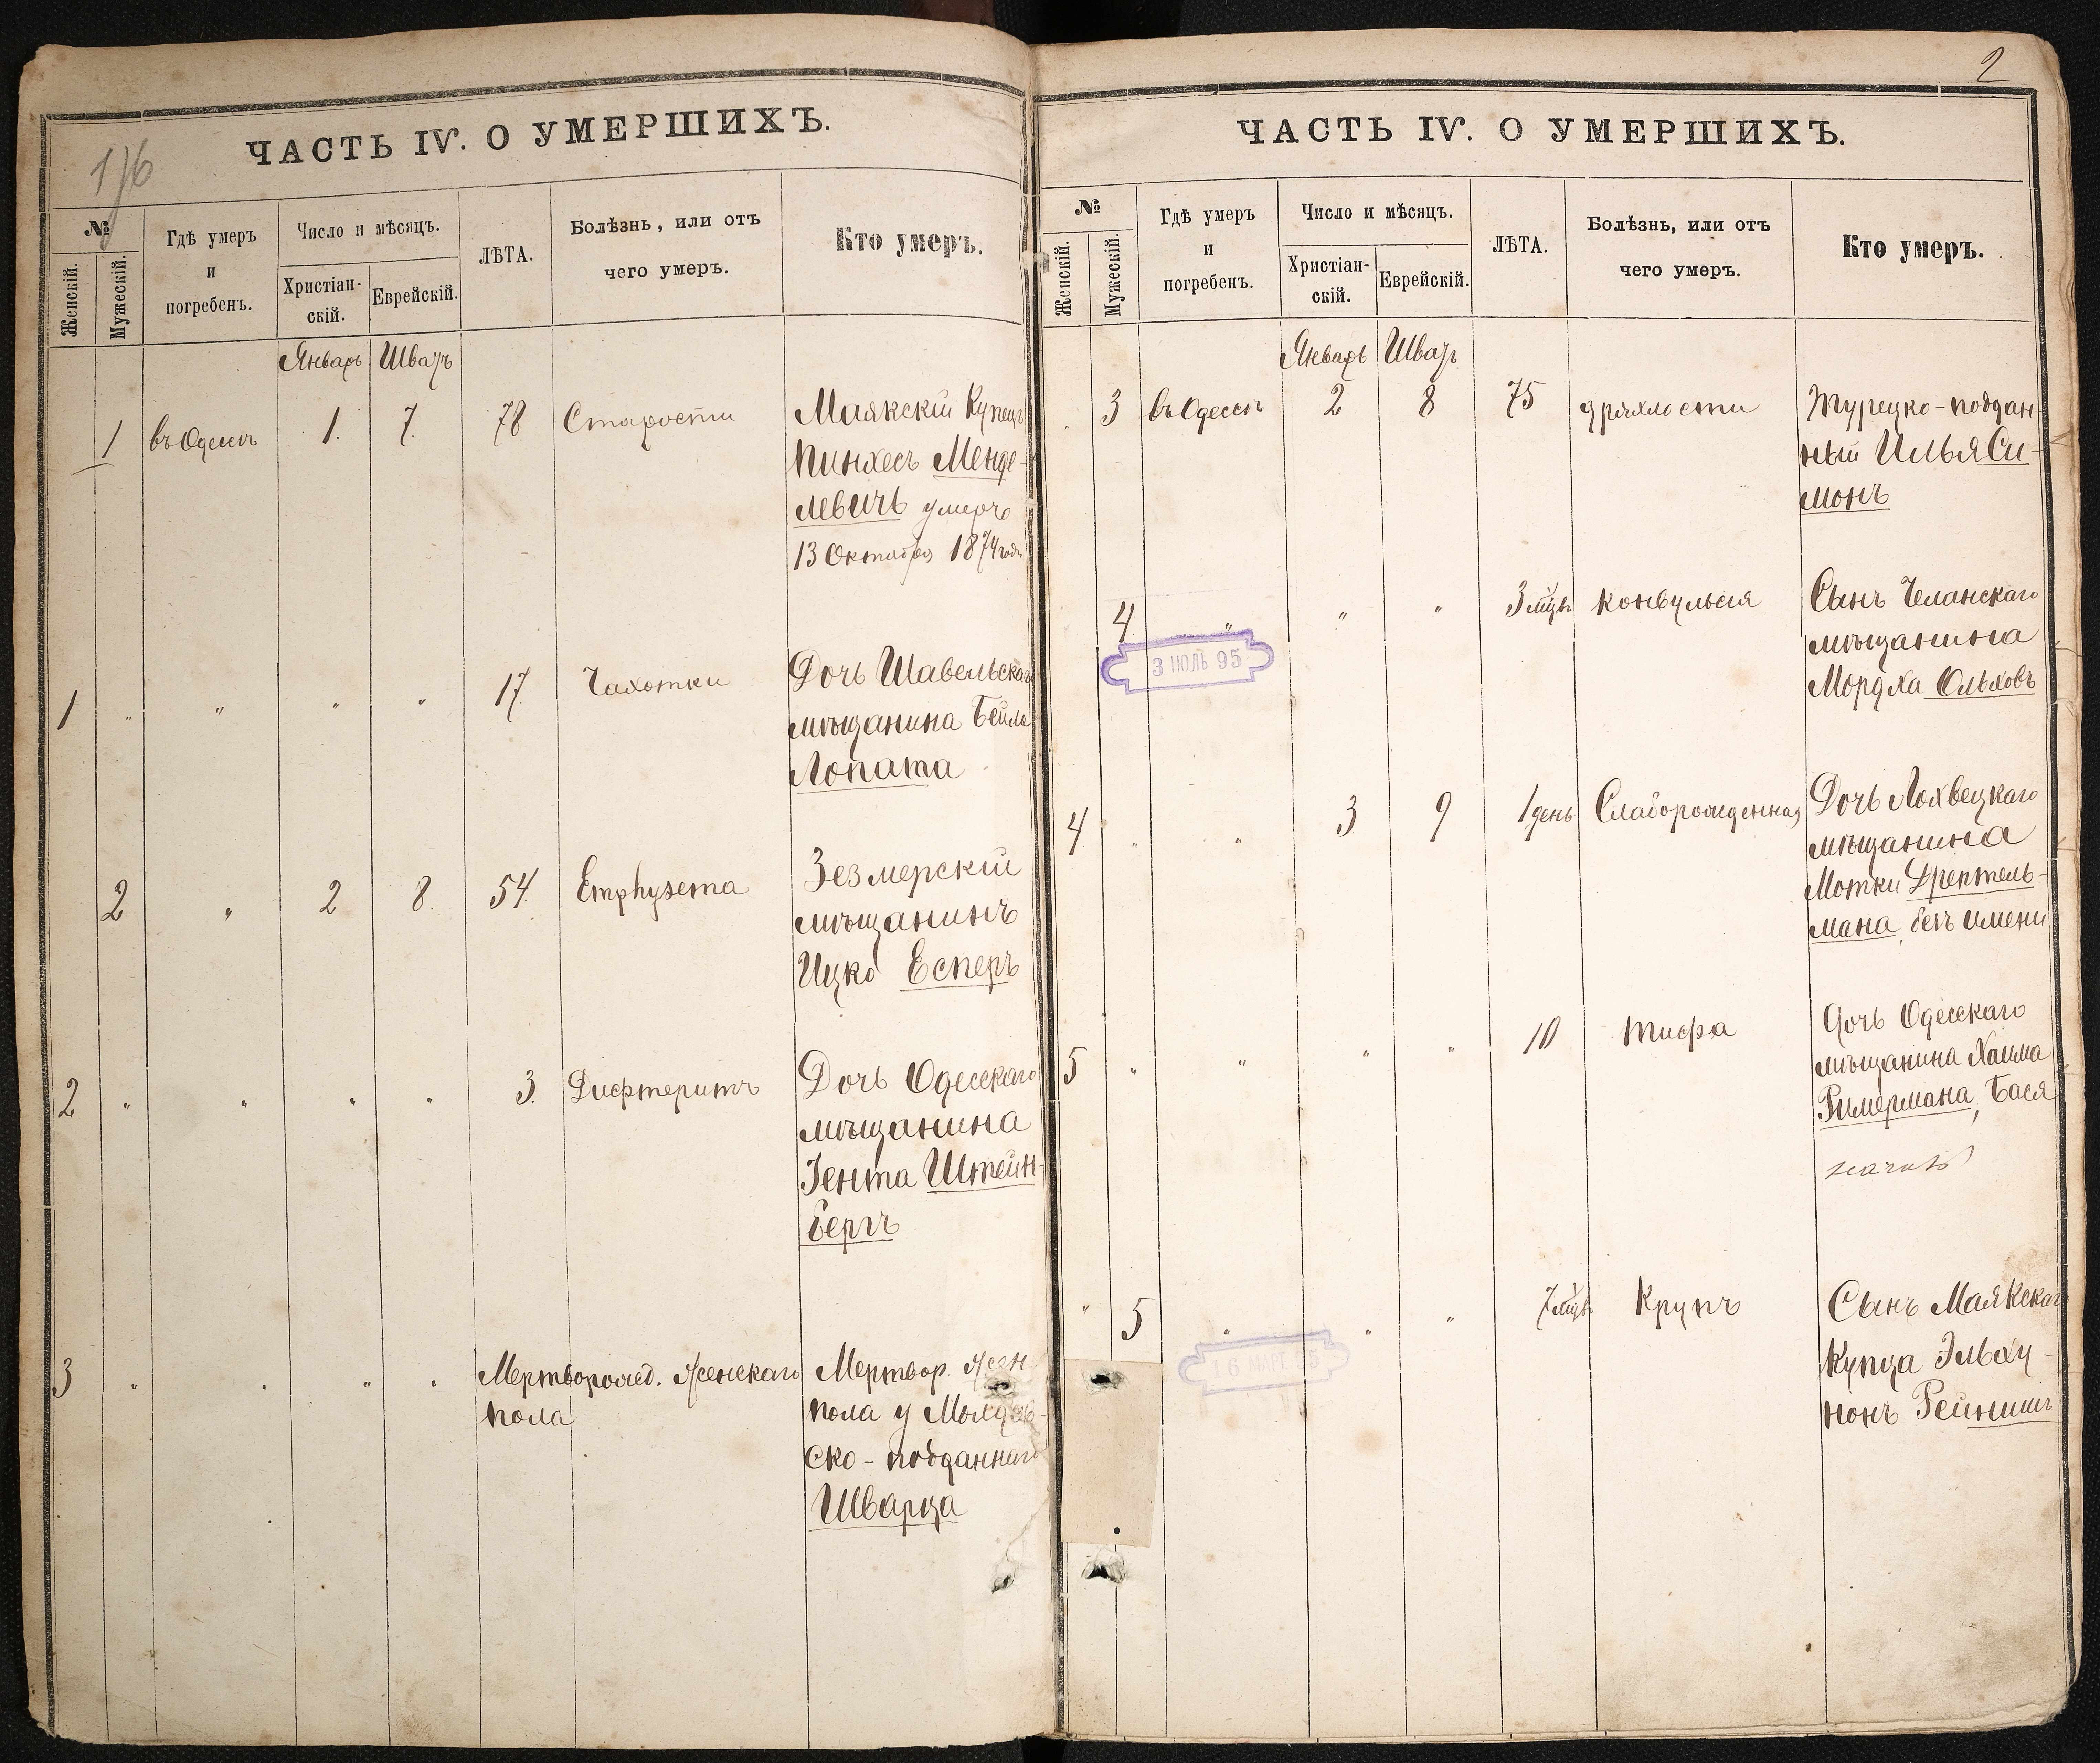 176
ЧАСТЬ IV. О УМЕРШИХЪ.
№
Женскій.
Мужескій.
Гдѣ умеръ
и
погребенъ.
Число и мѣсяцъ.
Христіан-
скій.
Еврейскій.
ЛѢТА.
Болѣзнь, или отъ
чего умеръ.
Кто умеръ.
Январь Шватъ
1 въ Одессѣ 1. 7. 78 Старости Маякскій Купецъ
Пинхесъ Менде-
левичъ умеръ
13 Октября 1874 года
1 " " " " 17 Чахотки Дочь Шавельскаго
мѣщанина Бейла
Лопата
2 " 2 8. 54. Emphysema Зезмерскій
мѣщанинъ
Ицко Есперъ
2 " " " " 3. Дифтеритъ Дочь Одесскаго
мѣщанина
Гента Штейн-
бергъ
3 " " " " Мертворожд. женскаго
пола
Мертвор. жен
пола у Молдав-
ско-подданнаго
Шварца
2
ЧАСТЬ IV. О УМЕРШИХЪ.
№
Женскій.
Мужескій.
Гдѣ умеръ
и
погребенъ.
Число и мѣсяцъ.
Христіан-
скій.
Еврейскій.
ЛѢТА.
Болѣзнь, или отъ
чего умеръ.
Кто умеръ.
Январь Шватъ
3 въ Одессѣ 2 8 75 дряхлости Турецко-поддан-
ный Илья Си-
монъ
4 " " " 3 мѣц. конвульсія Сынъ
мѣщанина
Мордха Ольховъ
3 ІЮЛЬ 95
4 " " 3 9 1 день Слаборожденная Дочь Лохвецкаго
мѣщанина
Мотки Дрептель-
мана, безъ имени
5 " " " " 10 Тифа Дочь Одесскаго
мѣщанина Хаима
Римермана, Бася
" 5 " " " 7 мѣц. Крупъ Сынъ Маякскаго
Купца Эльху-
нонъ
16 МАРТ. 95